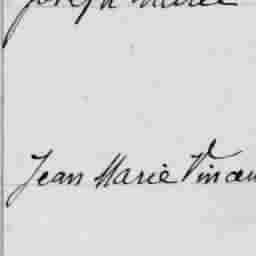 Joseph Marie
Jean Marie Vincen